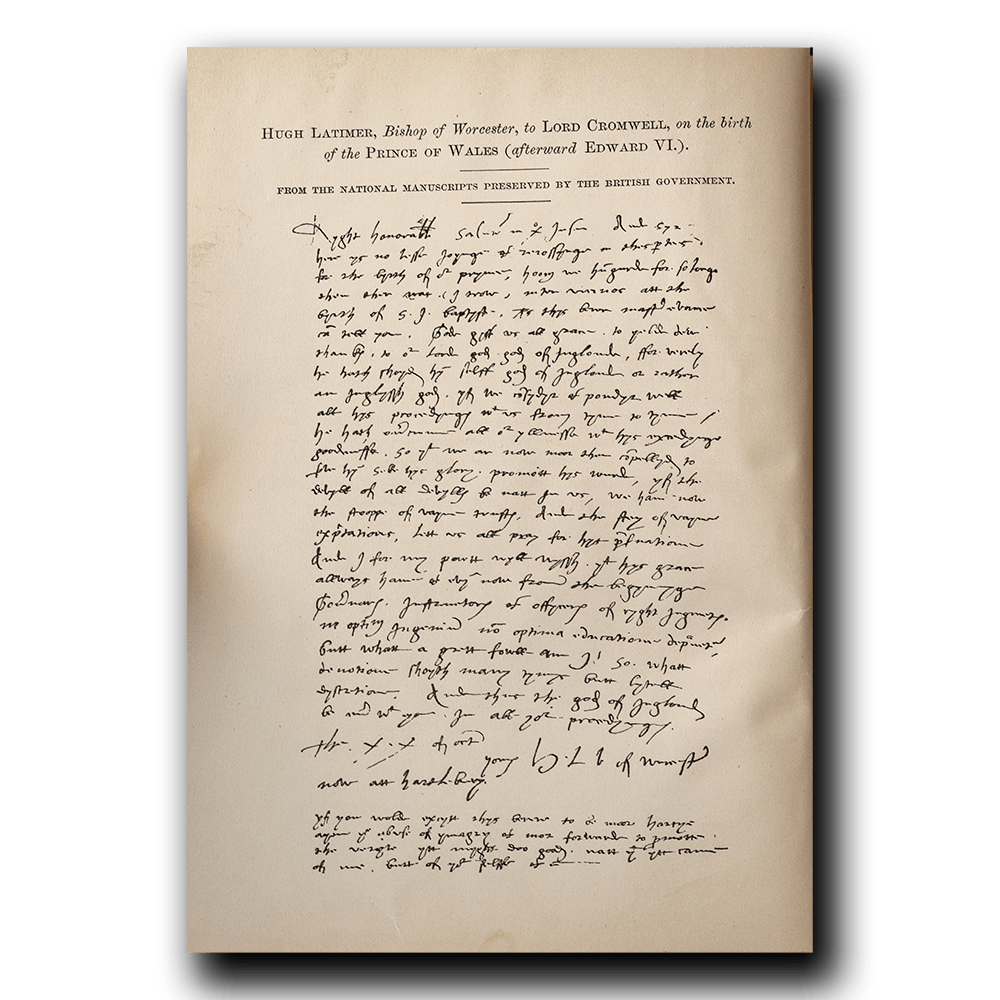 HUGH LATIMER, Bishop of Worcester, to LORD CROMWELL, on the birth
of the PRINCE OF WALES (afterward EDWARD VI.).
FROM THE NATIONAL MANUSCRIPTS PRESERVED BY THE BRITISH GOVERNMENT.
Ryght honorable Salutem in Jesu And syr
here ys no lesse joynge & rejossynge in thes partees
for the byrth of our prynce, hoom we hungurde for so longe
then ther was (I trow), inter vicinos att the
byrth of S. J. Baptyst, as thys berer master evance
can tell you. Gode gyff us all grace, to yelde dew
thanks to our lord god god of Inglonde, ffor verely
he hath shoyd hym selff god of Inglond or rather
an Inglyssh god, yf we consydyr & pondyr well
all hys procedyngs with us from tyme to tyme
he hath overcumme all our yllnesse with hys excedynge
goodnesse, so that we ar now mor then compellyd to
serve hym seke hys glory promott hys wurd, yf the
devyll of all devylls be natt in us, we have now
the stoppe of vayne trusts And the stey of vayne
expectations, lett us all pray for hys preservatione
And I for my partt wyll wyssh that hys grace
allways have & evyn now from the begynynge
Governors Instructors & offycers of ryght jugmente,
ne optimum Ingenium non optima educatione depravetur
butt whatt a grett fowll am I! So, whatt
devotione shoyth many tymys butt lytell
dyscretione. And thus the god of Inglond
be ever with you in all your procedyngs.
the x.x of octr
yours H L B of Wurcester
now att hartlebury.
yf you wolde excytt thys berer to be mor hartye
ayen the abuse of ymagry & mor forwarde to promotte
the veryte ytt myght doo good. natt that ytt came
of me, butt of your selffe &c